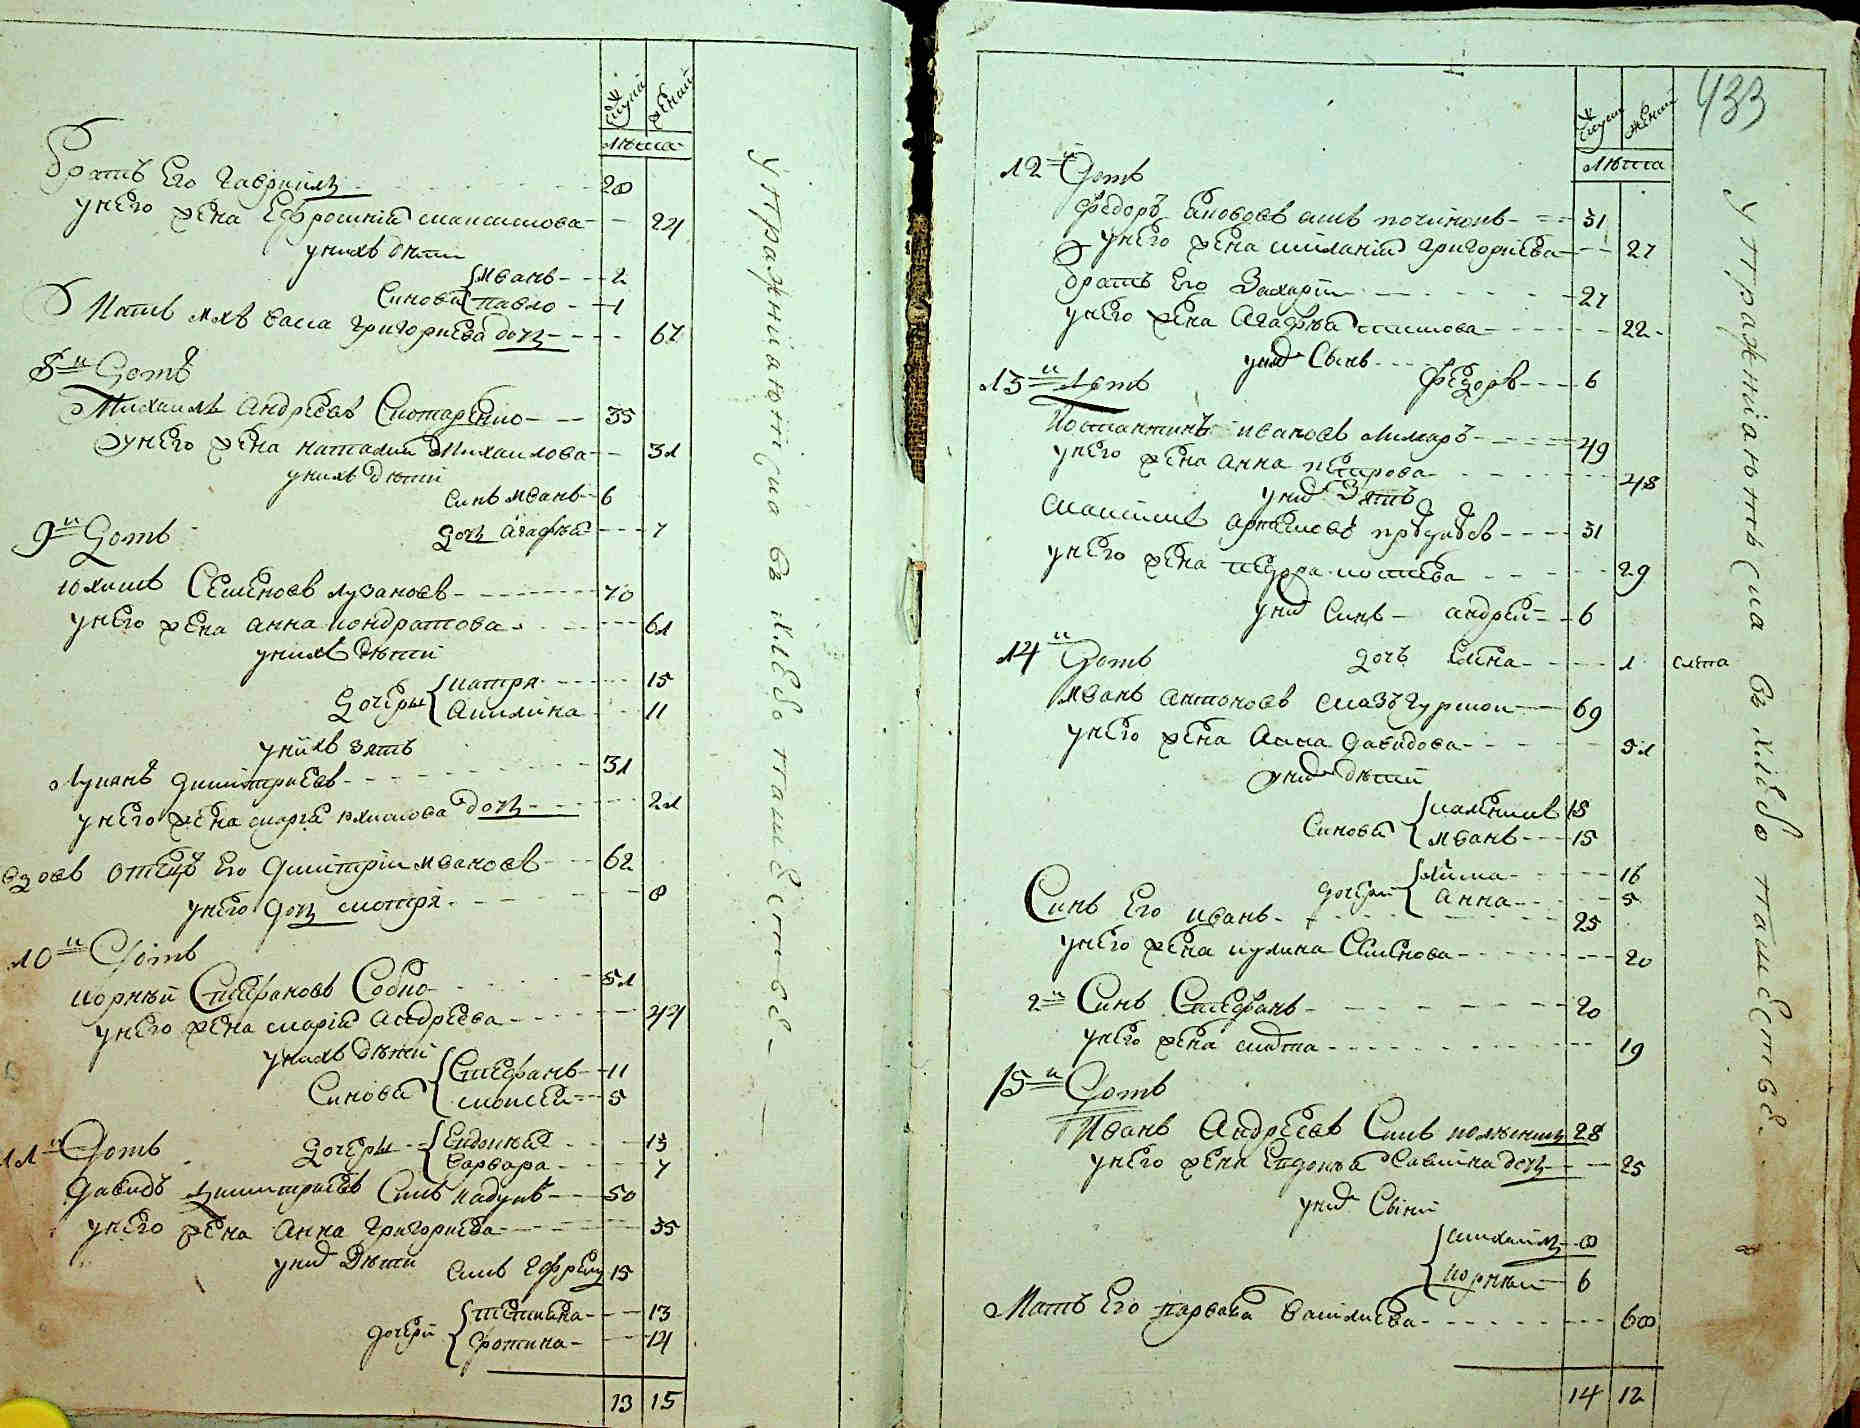 мужий жений
лѣта
братъ Его Гавриилъ 28
у него жена Ефросинія Максимова 24
у нихъ дѣти
Синови Иванъ 2
Павло 1
Мать ихъ Васса Григориева дочь 67
8й Домъ
Михаилъ Андрѣевъ Слютаренко 35
у него жена Наталия Михаилова 31
у нихъ дѣтѝ
синъ Иванъ 6
дочь Агафия 7
9й Домъ
Юхимъ Семеновъ Лузановъ 70
у него жена Анна Кондратова 61
у нихъ дѣти
Дочеры Матря 15
Акилина 11
у нихъ зять
Лукянъ Димитриевъ 31
у него жена Марія Юхимова дочь 21
вдовъ отецъ Его Димитрій Ивановъ 62
у него дочь Мотря 8
10й Домъ
Корнѣй Стефановъ Собко 51
у него жена Марія Андрѣева 44
у нихъ дѣти
Синови Стефанъ 11
Моисей 5
11й Домъ
Дочеры Евдокия 13
Варвара 7
Давидъ Димитриевъ синъ 50
у него жена Анна Григориева 35
у них дѣти синъ Ефремъ 15
дочери Татияна 13
Фотина 14
13 15
упражнаютса въ хлебопашестве
433
мужий жений
лѣта
12й Домъ
Федоръ синъ Починокъ 31
у него жена Мѝланія Григориева 27
братъ Его Захарій 27
у него жена Агафия 22
у них Сынъ Федоръ 6
13й Домъ
Костантинъ Ивановъ Лимаръ 49
у него жена Анна Петрова 48
у них Зять
Максимъ Артемовъ 31
у него жена Федора 29
у них синъ Андрей 6
дочъ Елена 1 слѣпа
14й Домъ
Иванъ Антоновъ 69
у него жена Анна Давидова 51
у них дѣти
Синови 18
Иванъ 15
дочери 16
Анна 5
Синъ Его Иванъ 25
у него жена Кулина Семенова 20
2й Синъ Стефанъ 20
у него жена 19
15й Домъ
Иванъ Андрѣевъ Синъ 28
у него жена Евдокия Савина дочь 25
у них Сыни
Михаилъ 8
Корнѣй 6
Мать Его Варвара Василиева 68
14 12
упражнаютса въ хлебопашестве